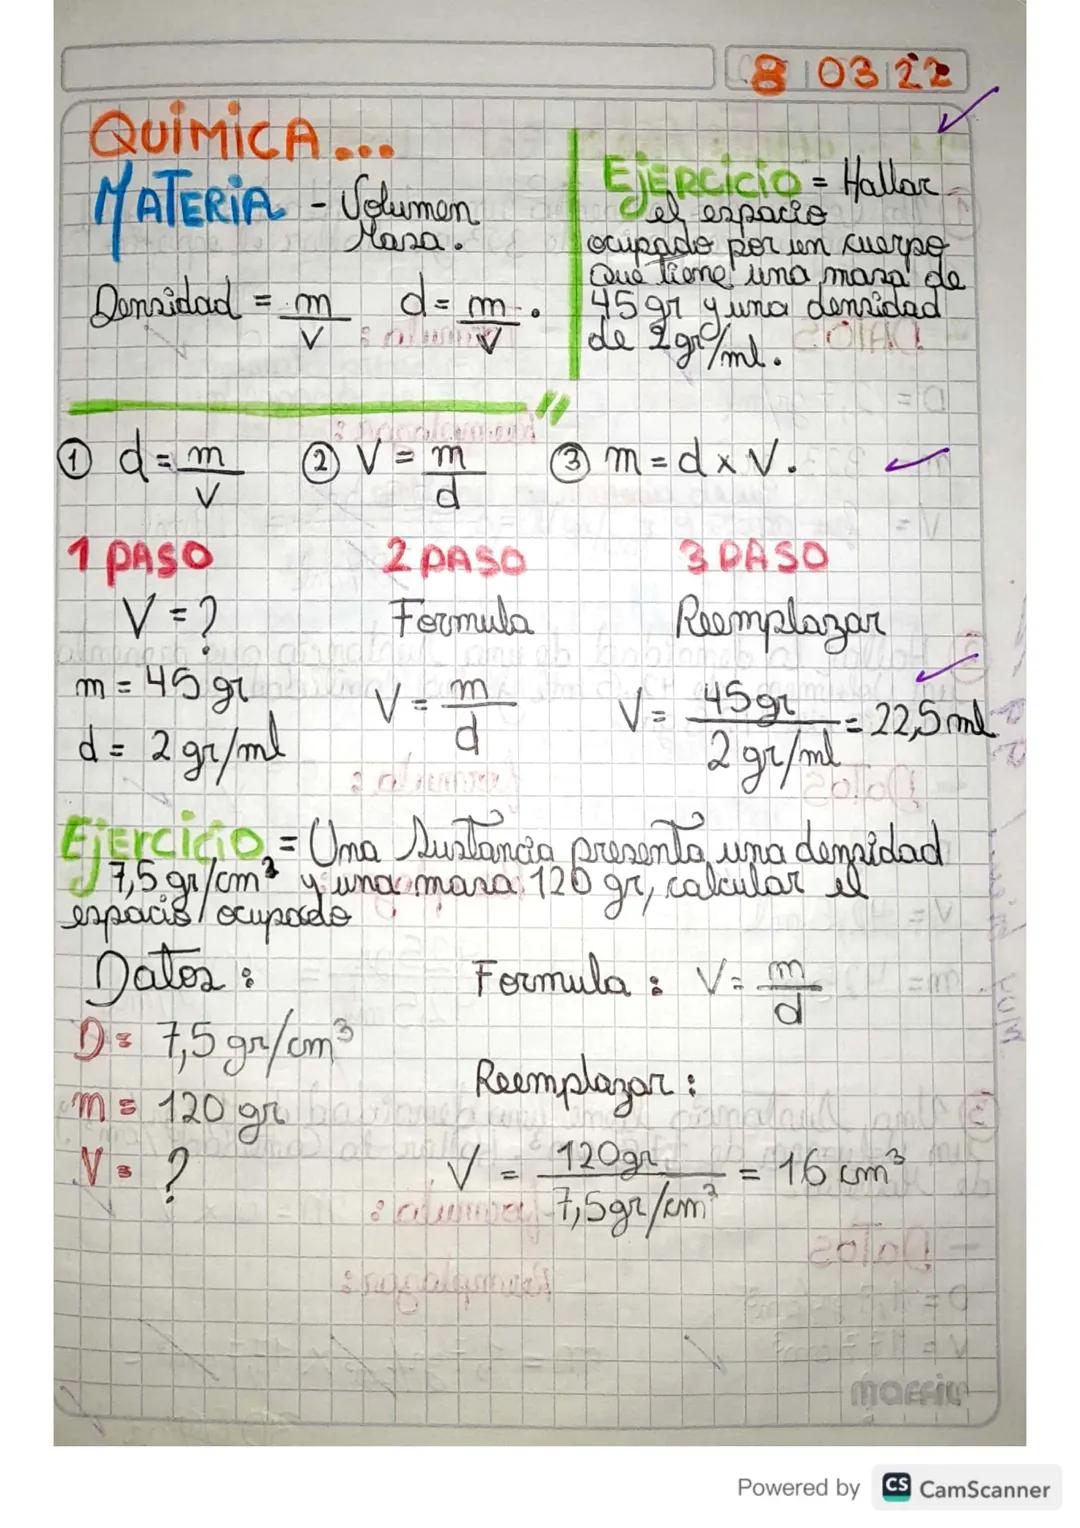 8 03 22
QUÍMICA...
MATERIA - Volumen
Masa.
Densidad = m/V   d = m/V.
Ejercicio = Hallar
el espacio
ocupado por un cuerpo
que tiene una masa de
45 gr y una densidad
de 2 gr/ml.
① d = m/V   ② V = m/d   ③ m = d x V.
1 PASO   2 PASO   3 PASO
V = ?   Formula   Reemplazar
m = 45 gr
d = 2 gr/ml   V = m/d   V = 45gr / 2 gr/ml = 22,5 ml
Ejercicio = Una Sustancia presenta una densidad
7,5 gr/cm³ y una masa 120 gr, calcular el
espacio ocupado
Datos:   Formula: V = m/d
D = 7,5 gr/cm³
m = 120 gr   Reemplazar:
V = ?   V = 120gr / 7,5gr/cm³ = 16 cm³
Powered by CS CamScanner